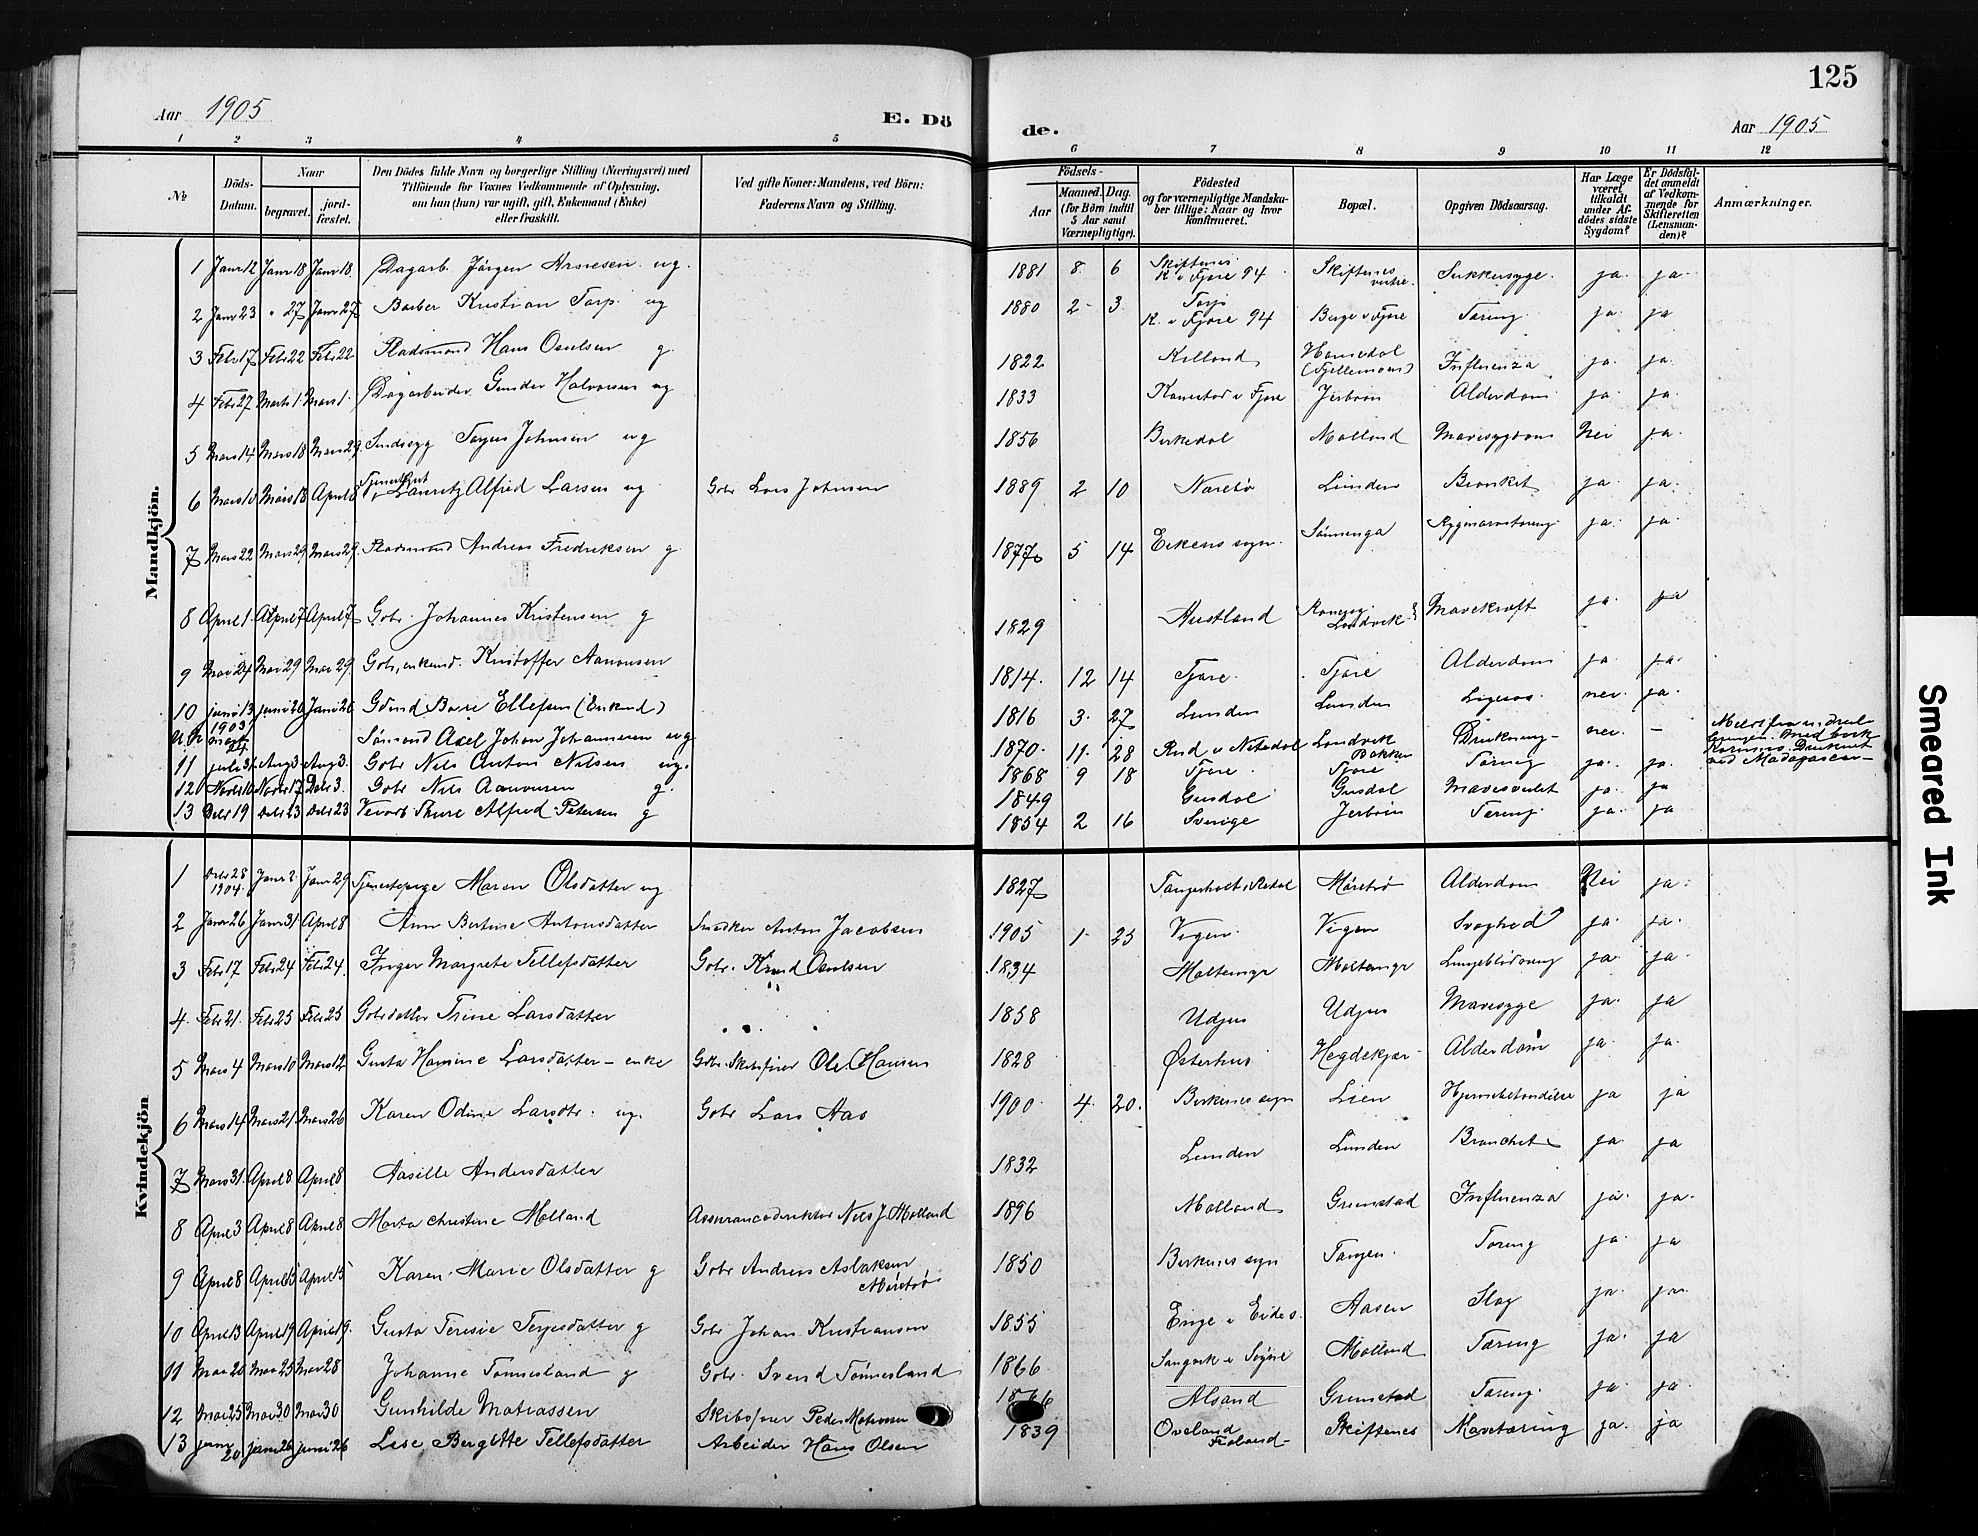 125
Aar 1905 E. Dö de. Aar 1905
1 2 3 4 5 6 7 8 9 10 11 12
No Döds-Datum. Naar begravet. jord-fæstet. Den Dödes fulde Navn og borgerlige Stilling (Næringsvei) med Tilföiende for Voxnes Vedkommende af Oplysning, om han (hun) var ugift, gift, Enkemand (Enke) eller fraskilt. Ved gifte Koner: Mandens, ved Börn: Faderens Navn og Stilling. Födsels- Aar Maaned. Dag. (for Börn indtil 5 Aar samt Værnepligtige). Födested og for værnepligtige Mandskaber tillige: Naar og hvor konfirmeret. Bopæl. Opgiven Dödsaarsag. Har Læge været tilkaldt under Afdödes sidste Sygdom? Er Dödsfaldet anmeldt af Vedkommende for Skifteretten (Lensmanden)? Anmærkninger.
Mandkjön.
1 Janr 12 Janr 18 Janr 18 Dagarb. Jörgen Arnesen ug. 1881 8 6 Skiftenes K. i Fjære 94 Skiftenes vestre Sukkersyge. ja. ja.
2 Janr 23 " 27 Janr 27 Barber Kristian Torp ug 1880 2 3 Torp K. i Fjære 94 Berge i Fjære Tæring. ja. ja
3 Febr 17 Febr 22 Febr 22 Pladsmand Hans Osulsen g. 1822 Kalland Homedal (Fjellemoen) Influenza ja. ja.
4 Febr 27 Marts 1. Mars 1. Dagarbeider Gunder Halvorsen ug 1833 Fjære Jerbøin Alderdom ja. ja.
5 Mars 14 Mars 18 Mars 29 Sindssyg Terjus Johnsen ug 1856 Birkedal Molland Mavesygdom Nei ja.
6 Mars 10 Mars 18 April 8 Tjenestegut Lauritz Alfred Larsen ug Gbr. Lars Johnsen 1889 2 10 Narestø Lunden Bronkit ja. ja.
7 Mars 22 Mars 29 Mars 29 Pladsmand Andreas Fredriksen g 1877 5 14 Eikens sogn. Sønnenga Rygmarvstæring ja. ja.
8 April 1. April 7 April 7 Gbr. Johannes Kristensen g 1829 Austland Landvik Mavekræft ja. ja
9 Mai 24 Mai 29 Mai 29 Gbr, enkemd. Kristoffer Aanonsen 1814. 12 14 Fjære. Fjære Alderdom ja. ja.
10 juni 13 juni 20 Juni 26 Gdmd Boye Ellefsen (Enkemd) 1816 3. 27 Lunden Lunden nei. ja.
1903 24 Sømand Axel Johan Johannesen ug 1870. 11. 28 Landvik Bakken Drukning nei. - Druknet ved Madagascar
11 juli 31 Aug 3. Aug 3. Gbr Nils Anton Nilsen ug. 1868 9 18 Fjære. Fjære Tæring ja. ja.
12 Novbr 10 Novbr 17 Debr 3. Gbr Nils Aanonsen g. 1849 Gusdal Gusdal Mavesvulst ja. ja
13 Debr 19 Debr 23 Debr 23 Vevarb. Thure Alfred Petersen g 1854 2 16 Sverige Jerbøin Tæring ja. ja
Kvindekjön
1 Debr 28 1904. Janr 2. Janr 29 Tjenestepige Maren Olsdatter ug 1827 Møretrø Alderdom Nei ja.
2 Janr 26 Janr 31 April 8 Ann Bertine Antonsdatter Snedker Anton Jacobsen 1905 1. 25 Vigen. Vigen Svaghed ja. ja.
3 Febr 17 Febr 24 Febr 24. Inger Margrete Tellefsdatter Gbr. Knud Osulsen 1834 Moltemyr Moltemyr Lungeblødning ja. ja.
4. Febr 21. Febr 25 Febr 25 Gbrdatter Trine Larsdatter 1858 Udjus Udjus Mavesyge ja. ja
5 Mars 4 Mars 10 Mars 12 Gusta Hansine Larsdatter - enke Gbr. Skibsfører Ole Hansen 1828 Østerhus Hegdekjær Alderdom ja. ja.
6 Mars 14 Mars 21. Mars 26 Karen Odine Larsdtr. ug. Gbr Lars Aas 1900. 4. 20. Birkenes sogn Lien Hjernebetændelse ja ja
7 Mars 31. April 8 April 8 Aasille Andersdatter 1832 Lunden Lunden Bronchit ja. ja
8 April 3 April 8 April 8 Marta Christine Molland Assurancedirektør Nils J. Molland 1896 Molland Grimstad Influenza ja. ja.
9 April 8 April 15 April 15 Karen Marie Olsdatter g Gbr Andreas Aslaksen Møretrø 1850 Birkenes sogn Tangen. Tæring ja. ja
10 April 13 April 19 April 19. Gusta Teresie Terjesdatter g Gbr Johan Kristiansen 1855 Enge i Eides. Aasen Slag ja. ja.
11 Mai 20 Mai 25 Mai 28 Johanne Tønnesland g Gbr. Svend Tønnesland 1866 i Søgne Molland Tæring ja. ja
12 Mai 25 Mai 30 Mai 30 Gunhilde Matiassen Skibsfører Peder Matiassen Alsand Grimstad Tæring. ja. ja
13 juni 20 juni 26 juni 26 Lise Bergitte Tellefsdatter Arbeider Hans Olsen 1839 Oveland Froland Skiftenes Mavetæring ja. ja
Smeared Ink